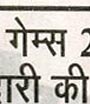 गेम्स 2
टारी की